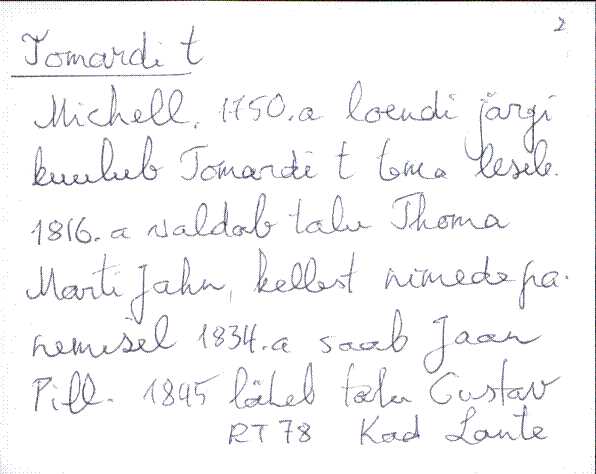 2
Tomardi t
Michell. 1750.a loendi järgi
kuulub Tomardi t tema lesele.
1816.a valdab talu Thoma
Marti Jahn, kellest nimede pa-
nemisel 1834.a saab Jaan
Pill. 1845 läheb talu Gustav
RT 78 Kad Lante